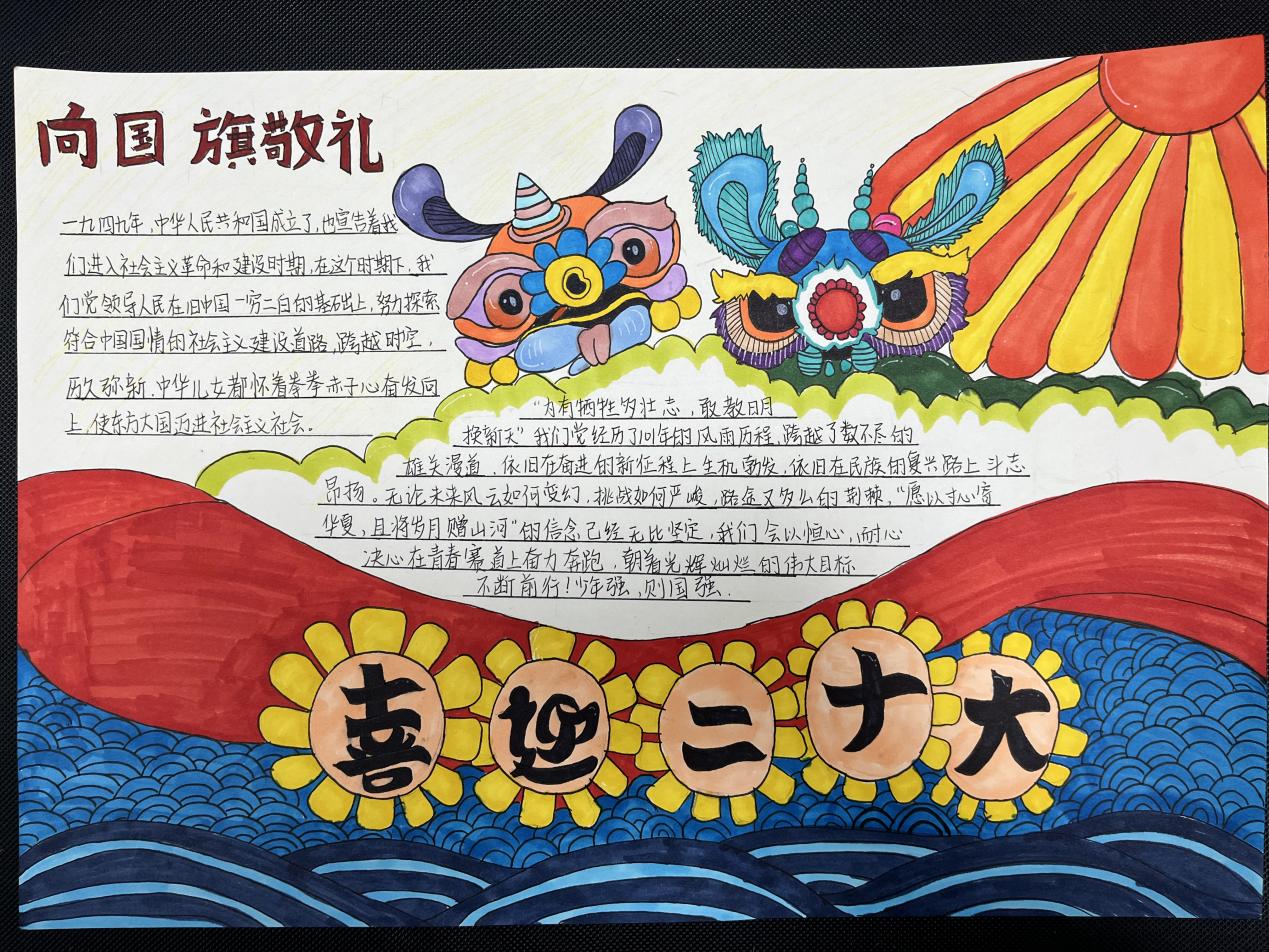 向国旗敬礼
一九四九年,中华人民共和国成立了,也宣告着我
们进入社会主义革命和建设时期,在这个时期下,我
们党领导人民在旧中国一穷二白的基础上,努力探索
符合中国国情的社会主义建设道路,跨越时空,
历久弥新.中华儿女都怀着拳拳赤子心奋发向
上,使东方大国迈进社会主义社会。
“为有牺牲多壮志,敢教日月
换新天”我们党经历了101年的风雨历程,跨越了数不尽的
雄关漫道,依旧在奋进的新征程上生机勃发,依旧在民族的复兴路上斗志
昂扬。无论未来风云如何变幻,挑战如何严峻,路途又多么的荆棘,“愿以寸心寄
华夏,且将岁月赠山河”的信念已经无比坚定,我们会以恒心,耐心
决心在青春赛道上奋力奔跑,朝着光辉灿烂的伟大目标
不断前行!少年强,则国强.
喜迎二十大